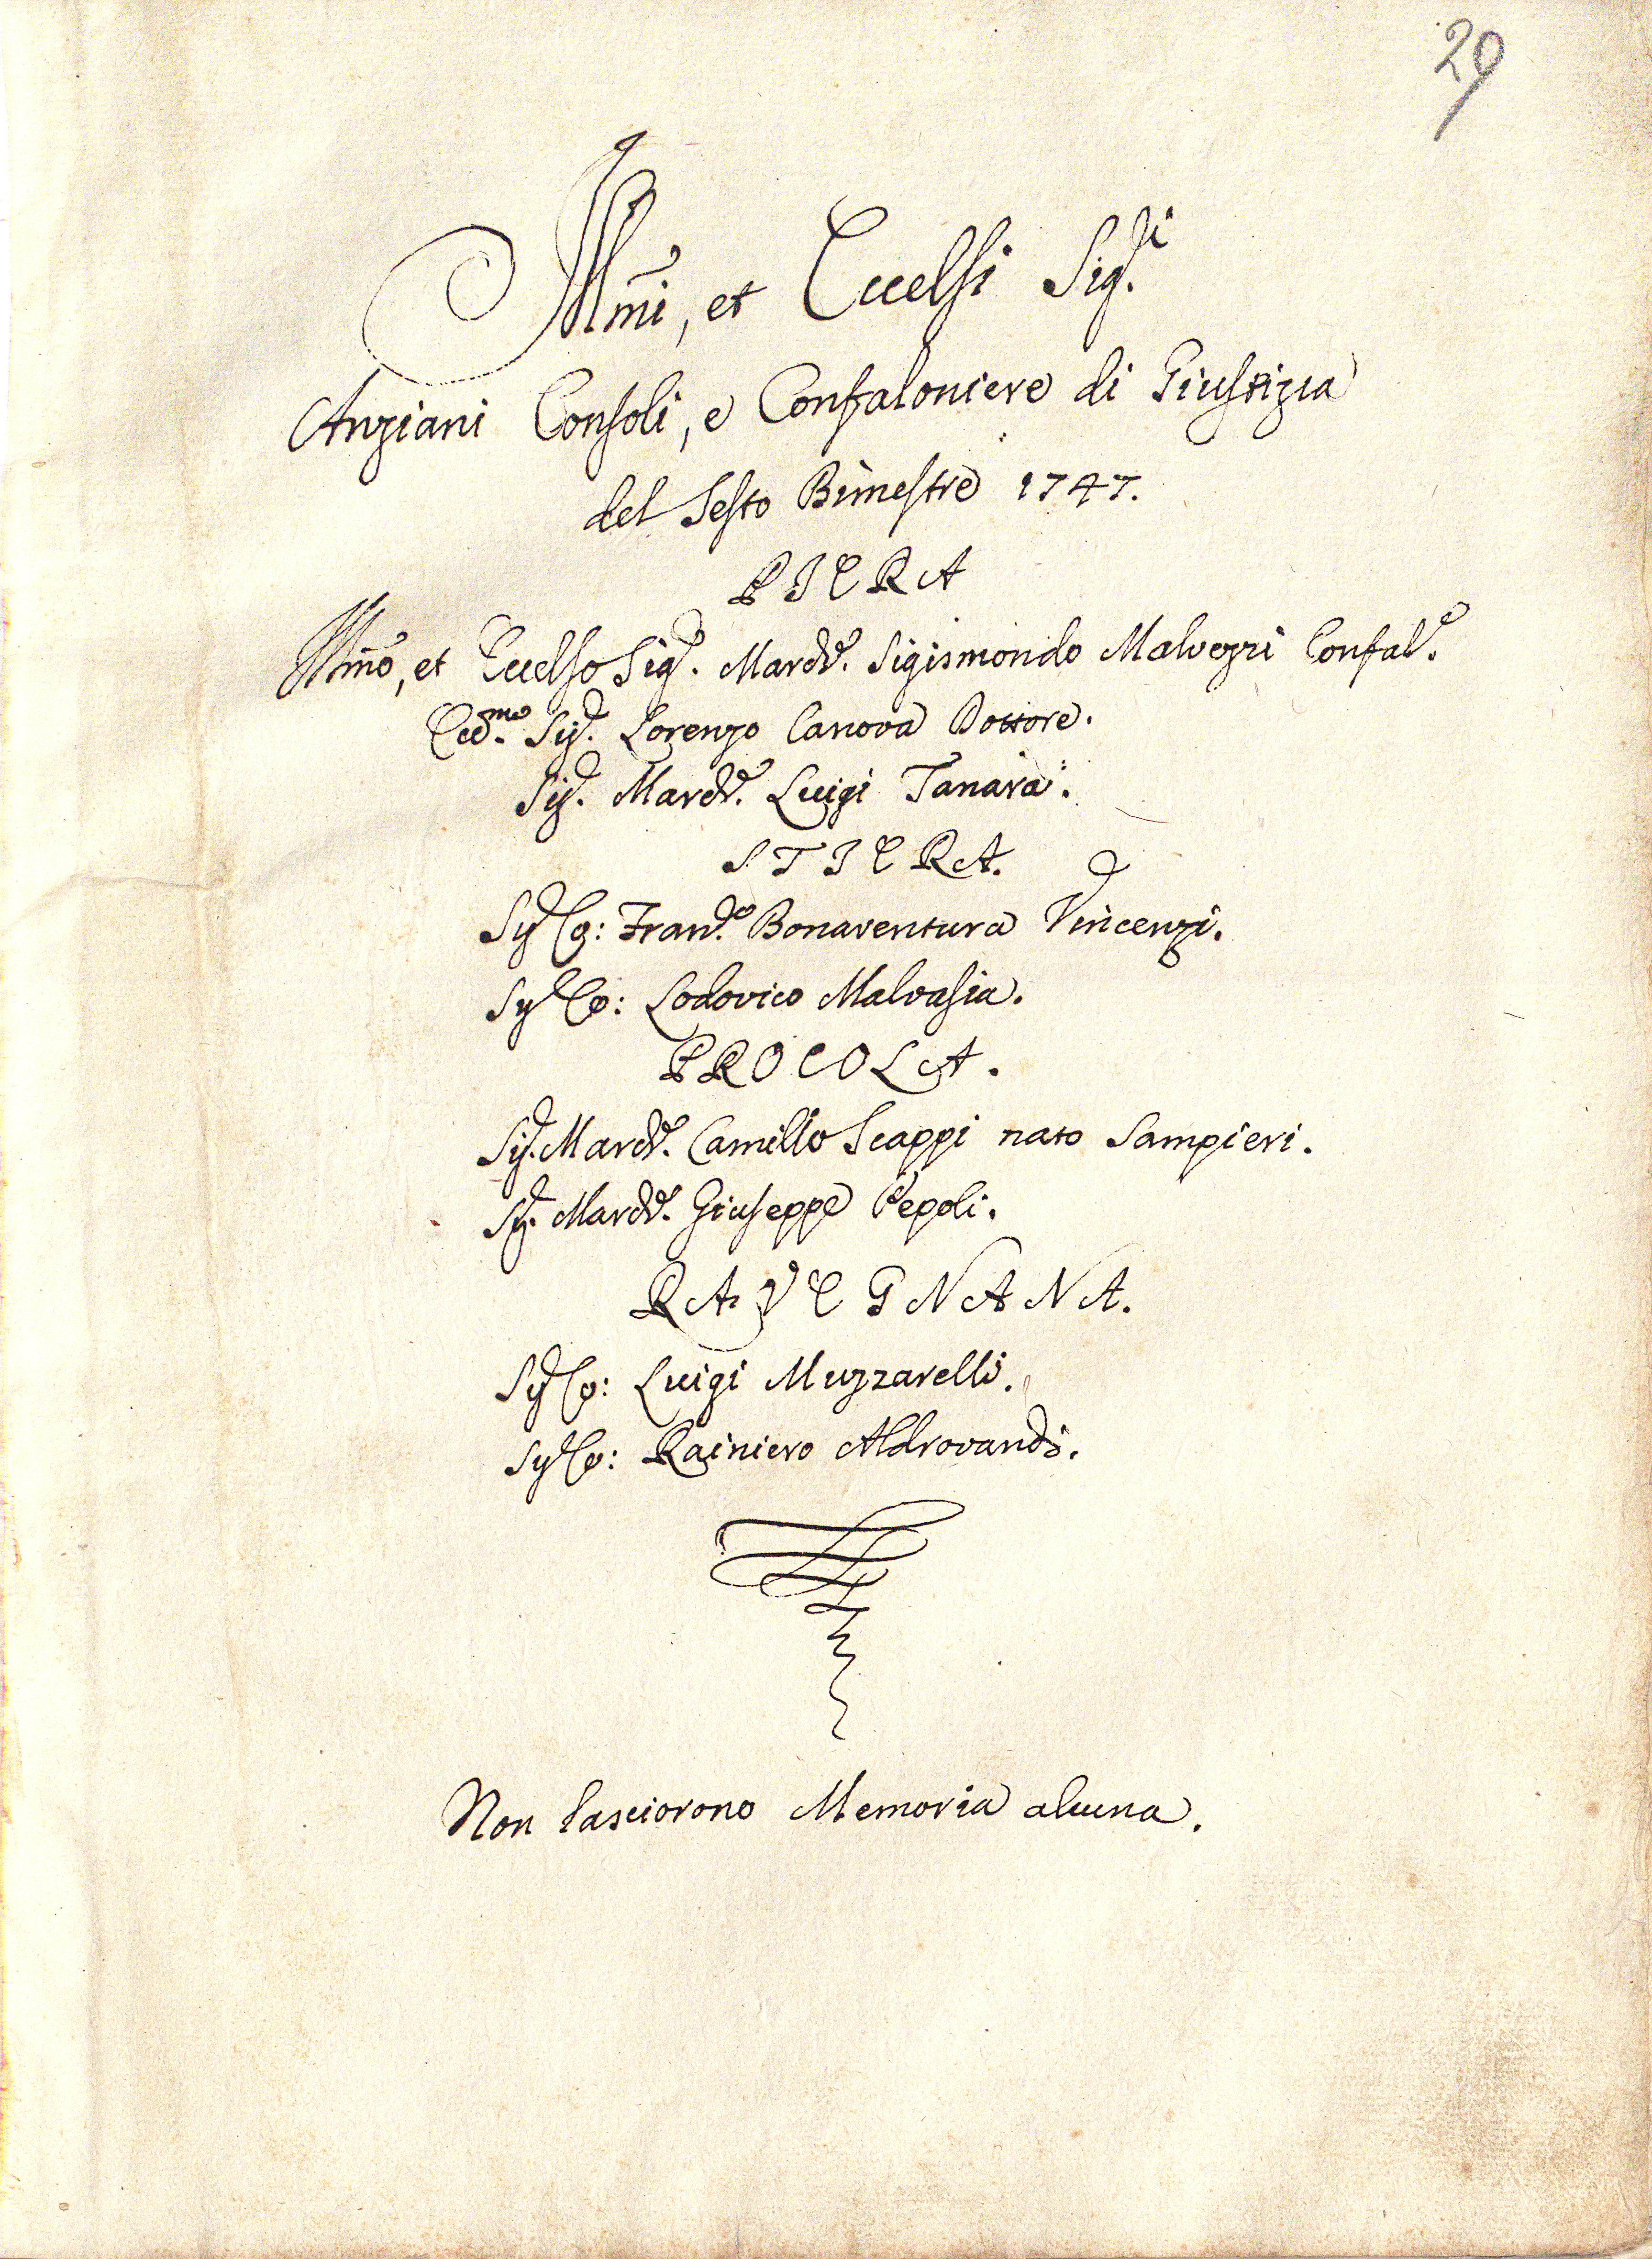 29
Ill.mi, et Eccelsi Sig.ri
Anziani Consoli, e Confaloniere di Giustizia
del Sesto Bimestre 1747.
PIERA
Ill.mo, et Eccelso Sig.r March.e Sigismondo Malvezzi Confal.e
Ecc.mo Sig.r Lorenzo Canova Dottore.
Sig.r March.e Luigi Tanara.
STIERA.
Sig.r Co: Fran.co Bonaventura Vincenzi.
Sig.r Co: Lodovico Malvasia.
PROCOLA.
Sig.r March.e Camillo Scappi nato Sampieri.
Sig.r March.e Giuseppe Pepoli.
RAVEGNANA.
Sig.r Co: Luigi Muzzarelli.
Sig.r Co: Rainiero Aldrovandi.
Non lasciorono Memoria alcuna.